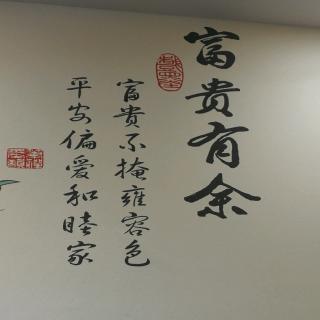 富贵有余
富贵不掩雍容色
平安偏爱和睦家